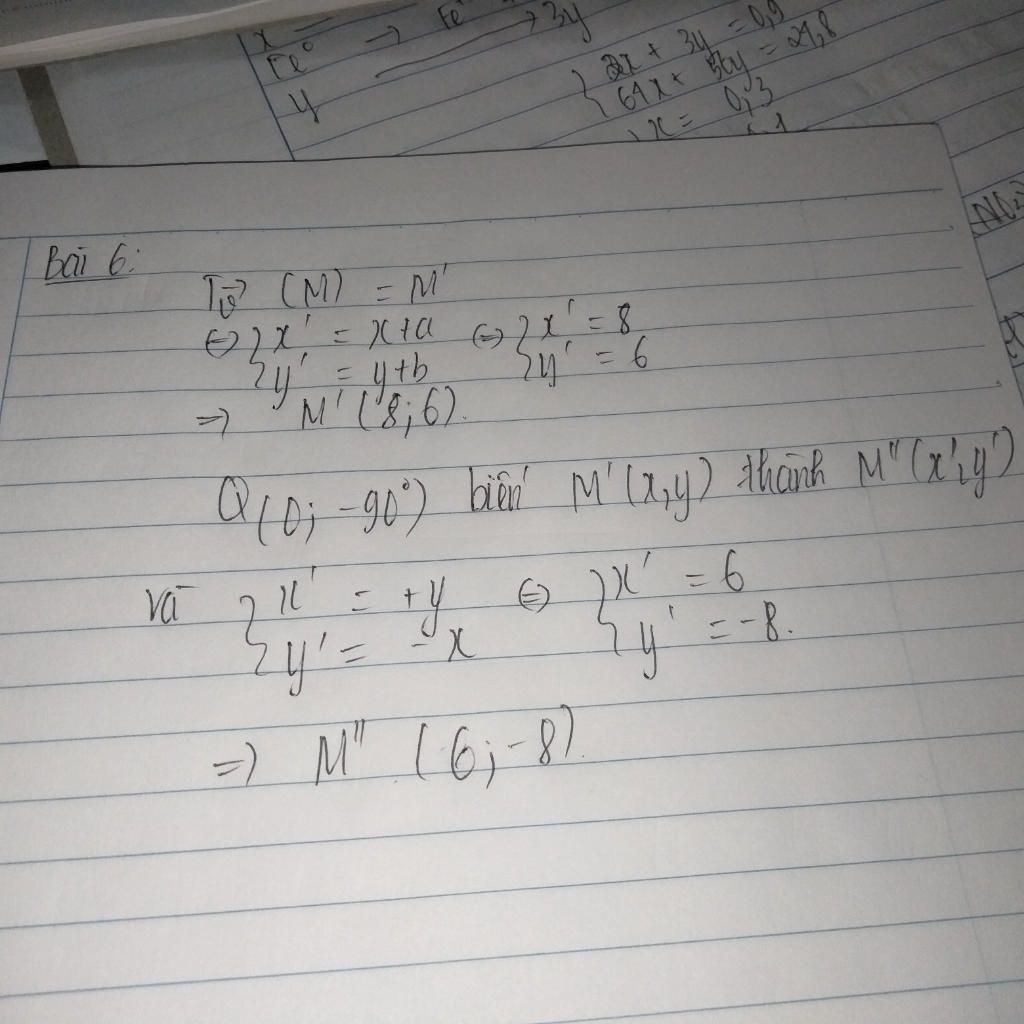 x
Fe⁰ → Fe → 3y
y
{ 2x + 3y = 0,9
64x + 56y = 24,8
x = 0,3
Bài 6:
Tv⃗ (M) = M'
⇔ { x' = x+a ⇔ { x' = 8
y' = y+b y' = 6
⇒ M' (8;6).
Q(0; -90°) biến M'(x,y) thành M"(x',y')
và { x' = +y ⇔ { x' = 6
y' = -x y' = -8.
⇒ M" (6;-8).